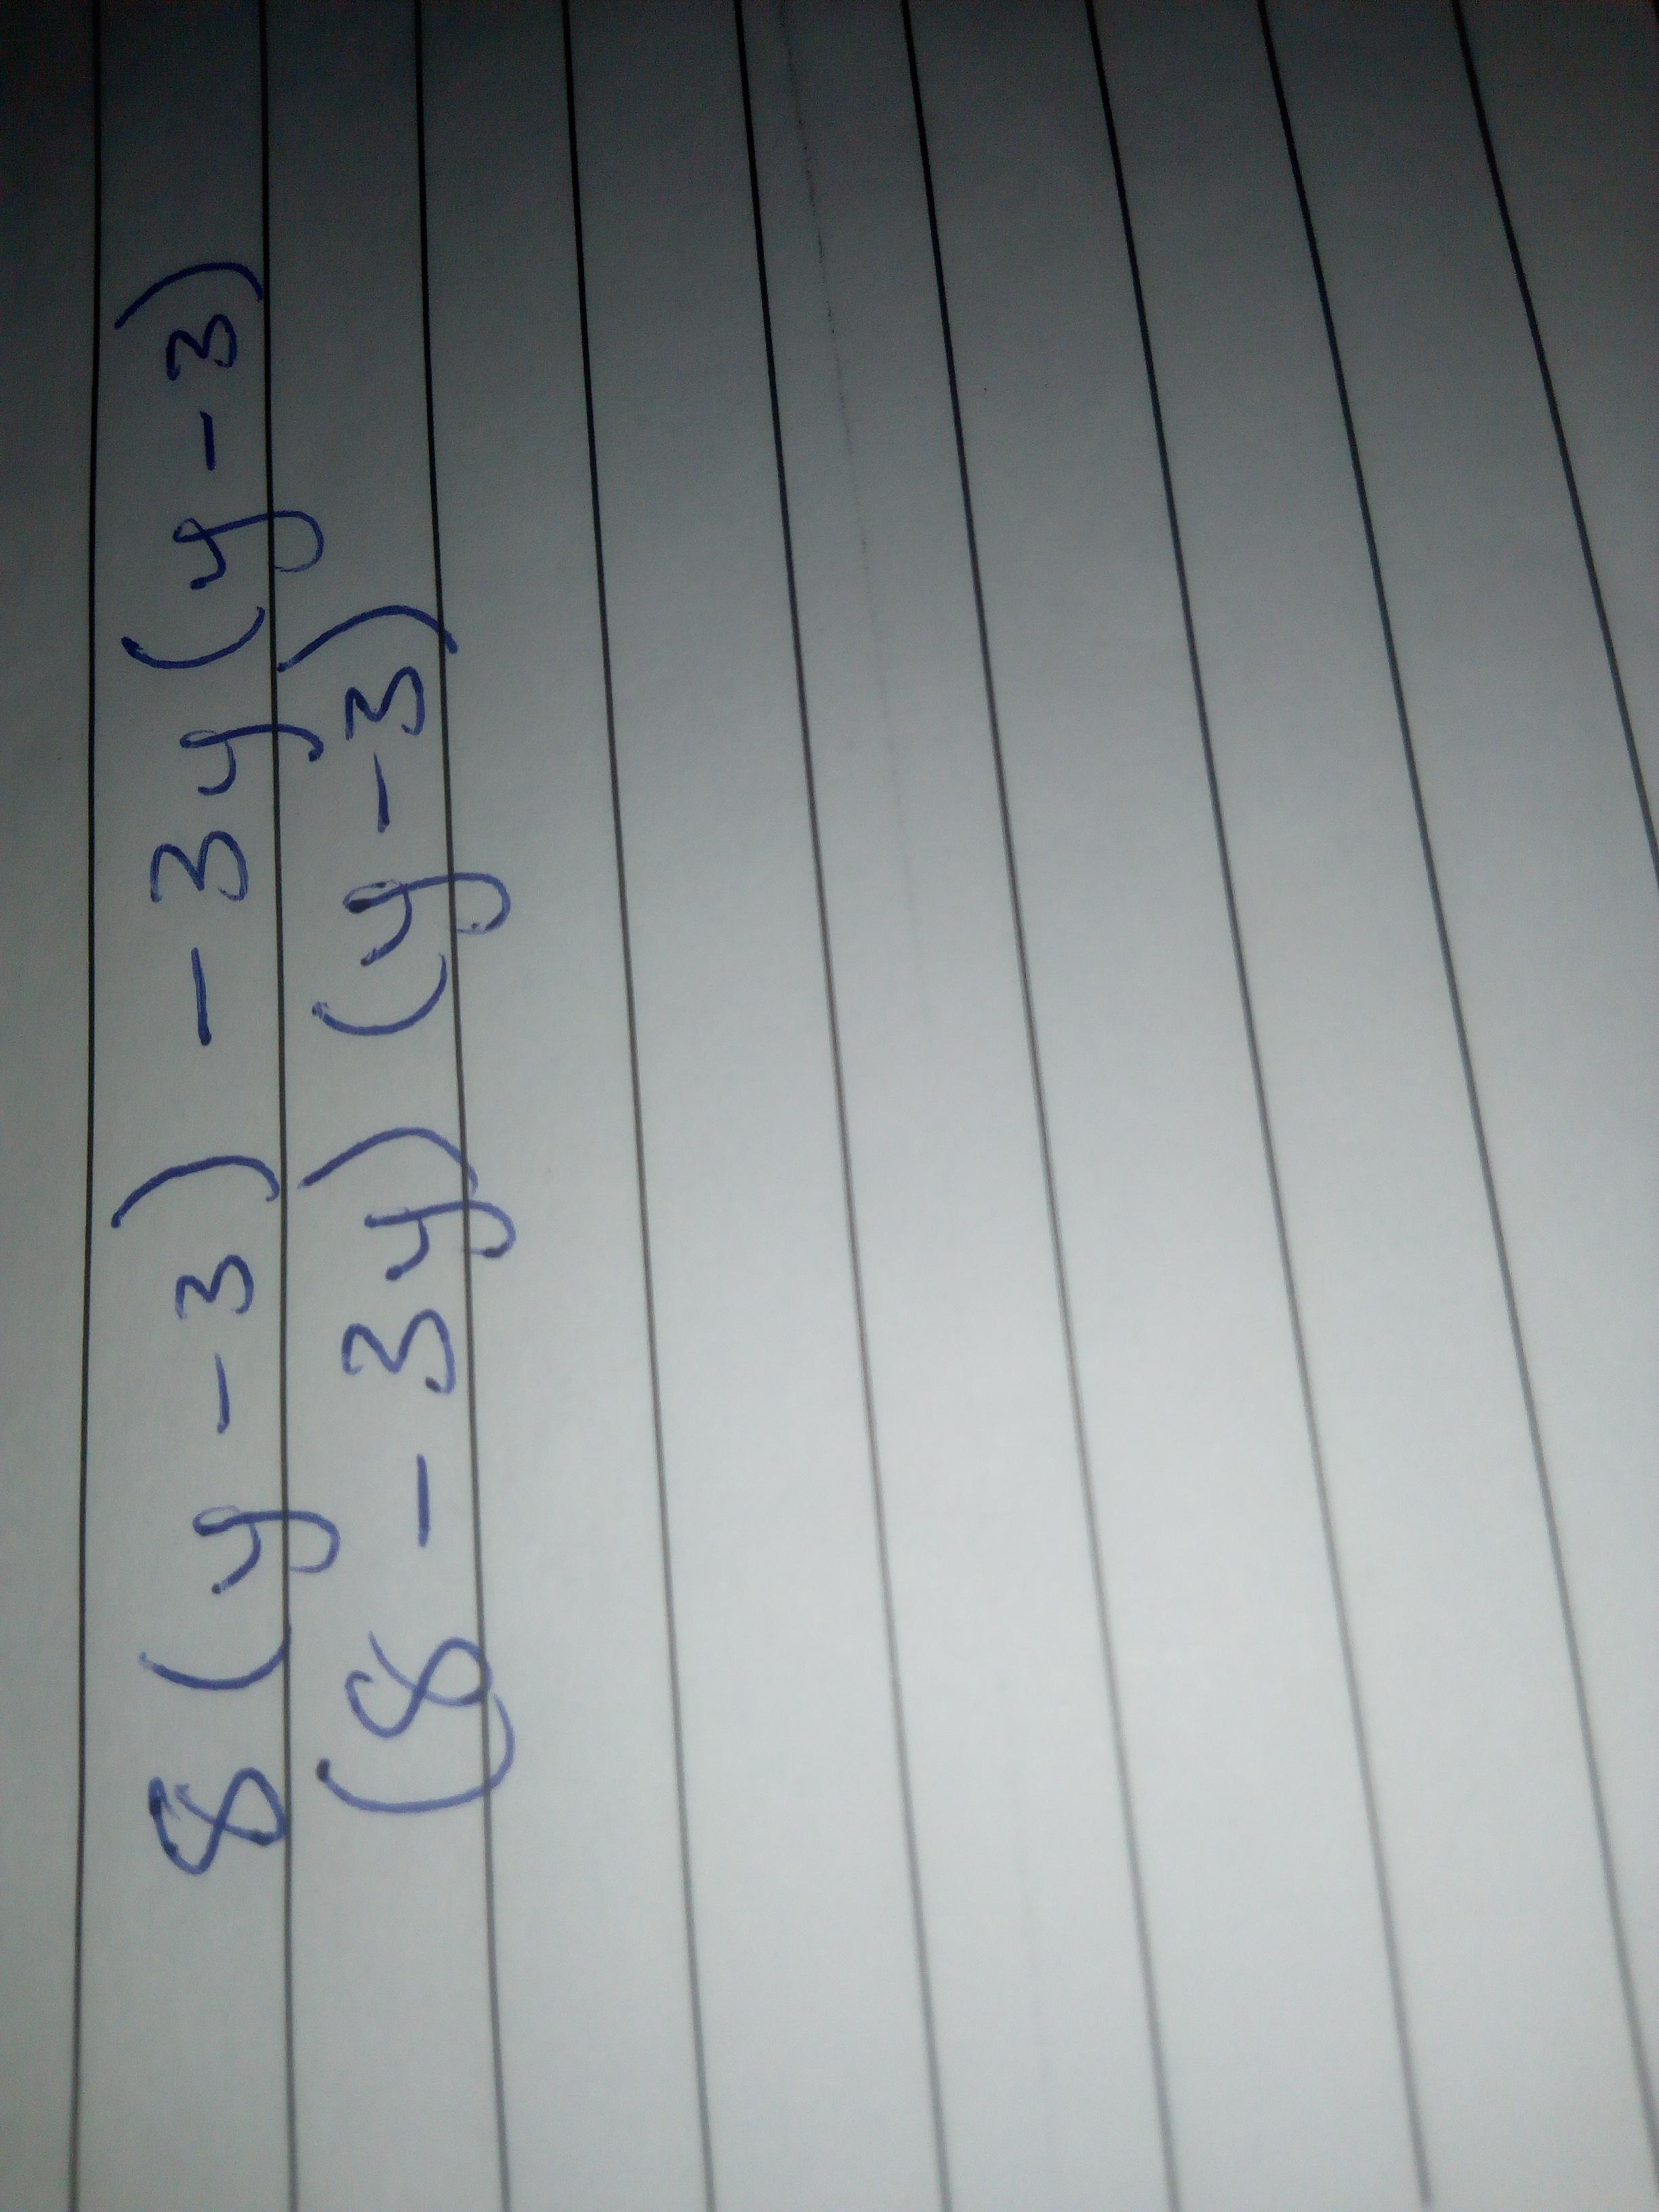 8(y-3) - 3y(y-3)
(8 - 3y)(y-3)